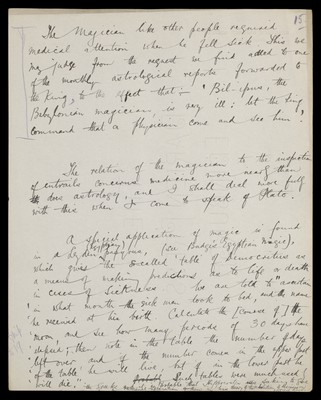 15
The Magician like other people required
medical attention when he fell sick. This we
may judge from the request we find added to one
of the monthly astrological reports forwarded to
the King, to the effect that:– "Bil-ipus, the
Babylonian magician is very ill: let the King
command that a physician come and see him."
The relation of the magician to the inspection
of entrails concerns medicine more nearly than
does astrology, and I shall deal more fully
with this when I come to speak of Plato.
A special application of magic is found
in a Leyden papyrus, (see Budge's Egyptian Magic),
which gives the so called "table of democritus" as
a means of making predictions as to life or death
in cases of sickness. We are told to "ascertain
in what month the sick man took to bed, and the name
he received at his birth. Calculate the [course of] the
moon, and see how many periods of 30 days have
elapsed; then note in the table the number of days
left over and if the number comes in the upper part
of the table he will live, but if in the lower part he
will die." Such tables were much used